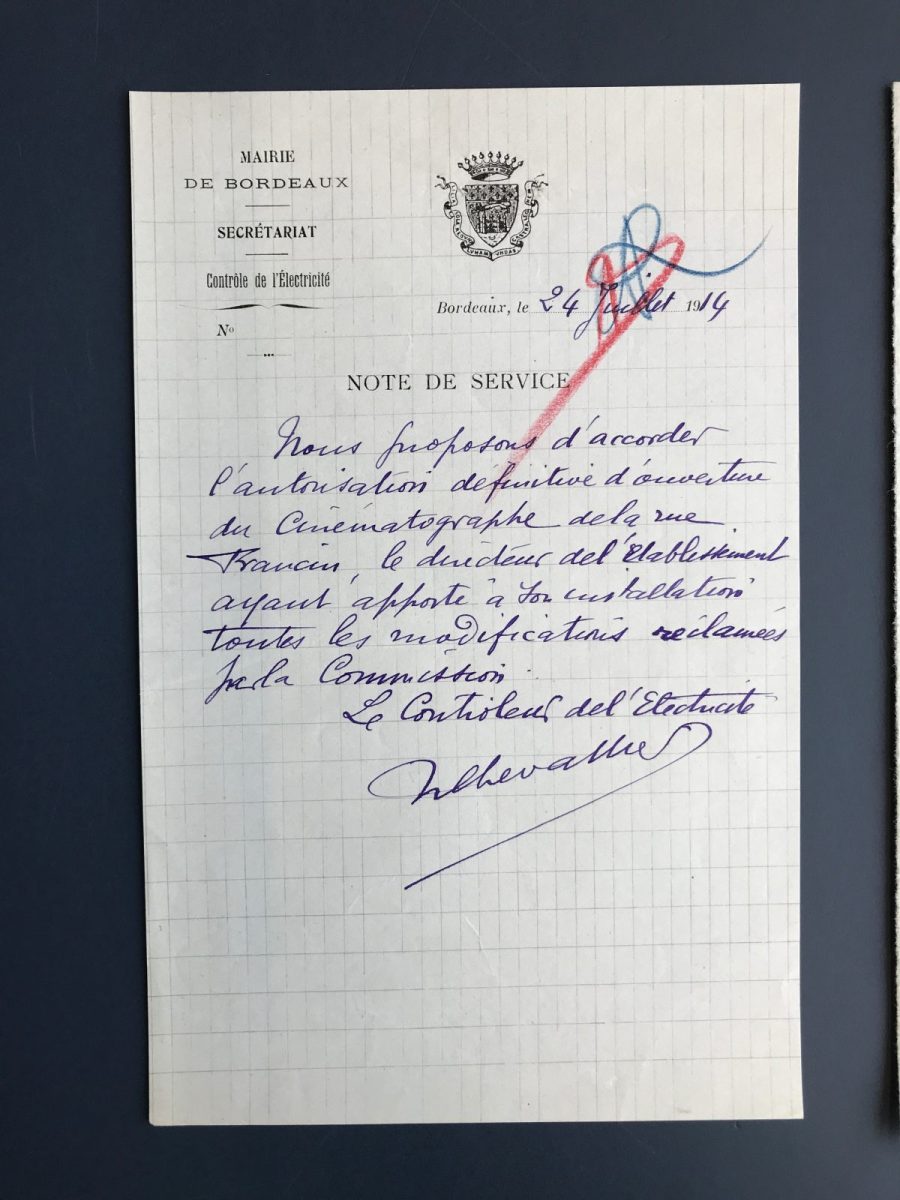 MAIRIE
DE BORDEAUX
SECRÉTARIAT
Contrôle de l'Électricité
No
Bordeaux, le 24 Juillet 1914
NOTE DE SERVICE
Nous proposons d'accorder
l'autorisation définitive d'ouverture
du Cinématographe de la rue
Francin, le directeur de l'Etablissement
ayant apporté à son installation
toutes les modifications réclamées
par la Commission.
Le Contrôleur de l'Electricité